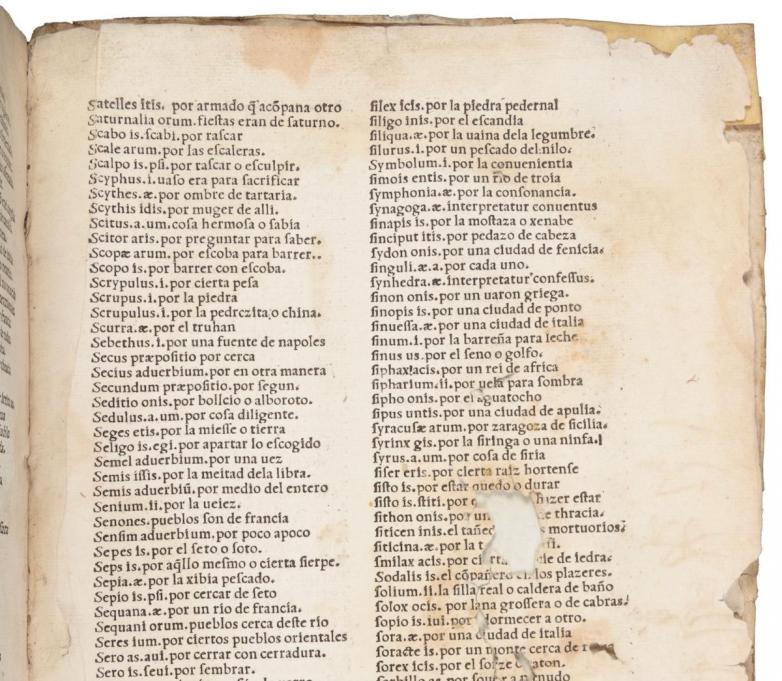 Satelles itis. por armado q̃ acõpana otro
Saturnalia orum. fieſtas eran de ſaturno.
Scabo is.ſcabi.por raſcar
Scale arum.por las eſcaleras.
Scalpo is.pſi.por raſcar o eſculpir.
Scyphus.i.uaſo era para ſacrificar
Scythes.æ.por ombre de tartaria.
Scythis idis.por muger de alli.
Scitus.a.um.coſa hermoſa o ſabia
Scitor aris.por preguntar para ſaber.
Scopæ arum.por eſcoba para barrer..
Scopo is.por barrer con eſcoba.
Scrypulus.i.por cierta peſa
Scrupus.i.por la piedra
Scrupulus.i.por la pedrezita,o china.
Scurra.æ.por el truhan
Sebethus.i.por una fuente de napoles
Secus præpoſitio por cerca
Secius aduerbium.por en otra manera
Secundum præpoſitio.por ſegun.
Seditio onis.por bollcio o alboroto.
Sedulus.a.um.por coſa diligente.
Seges etis.por la mieſſe o tierra
Seligo is.egi.por apartar lo eſcogido
Semel aduerbium.por una uez
Semis iſſis.por la meitad dela libra.
Semis aduerbiũ.por medio del entero
Senium.ii.por la ueiez.
Senones.pueblos ſon de francia
Senſim aduerbium.por poco apoco
Sepes is.por el ſeto o ſoto.
Seps is.por aq̃llo meſmo o cierta ſierpe.
Sepia.æ.por la xibia peſcado.
Sepio is.pſi.por cercar de ſeto
Sequana.æ.por un rio de francia.
Sequani orum.pueblos cerca deſte rio
Seres ium.por ciertos pueblos orientales
Sero as.aui.por cerrar con cerradura.
Sero is.ſeui.por ſembrar.
ſilex icis.por la piedra pedernal
ſiligo inis.por el eſcandia
ſiliqua.æ.por la uaina dela legumbre.
ſilurus.i.por un peſcado del.nilo.
Symbolum.i.por la conuenientia
ſimois entis.por un rio de troia
ſymphonia.æ.por la conſonancia.
ſynagoga.æ.interpretatur conuentus
ſinapis is.por la moſtaza o xenabe
ſinciput itis.por pedazo de cabeza
ſydon onis.por una ciudad de fenicia.
ſinguli.æ.a.por cada uno.
ſynhedra.æ.interpretatur confeſſus.
ſinon onis.por un uaron griega.
ſinopis is.por una ciudad de ponto
ſinueſſa.æ.por una ciudad de italia
ſinum.i.por la barreña para leche
ſinus us.por el ſeno o golfo.
ſiphax acis.por un rei de africa
ſipharium.ii.por uela para ſombra
ſipho onis.por el aguatocho
ſipus untis.por una ciudad de apulia.
ſyracuſæ arum.por zaragoza de ſicilia.
ſyrinx gis.por la ſiringa o una ninfa.
ſyrus.a.um.por coſa de ſiria
ſiſer eris.por cierta raiz hortenſe
ſiſto is.por eſtar quedo o durar
ſiſto is.ſtiti.por hazer eſtar
ſithon onis.por un thracia.
ſiticen inis.el mortuorios.
ſiticina.æ.por la
ſmilax acis.por de iedra.
Sodalis is.el cõpañero en los plazeres.
ſolium.ii.la ſilla real o caldera de baño
ſolox ocis.por lana groſſera o de cabras.
ſopio is.iui.por dormecer a otro.
ſora.æ.por una ciudad de italia
ſoracte is.por un monte cerca de
ſorex icis.por el